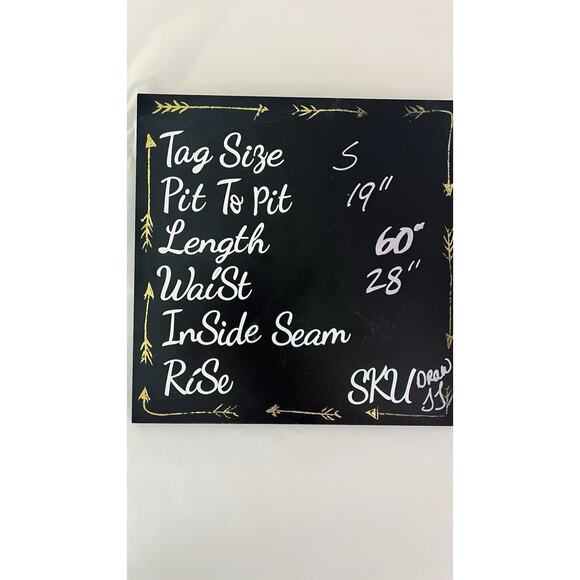 Tag Size S
Pit To Pit 19"
Length 60"
WaiSt 28"
InSide Seam
RiSe
SKU